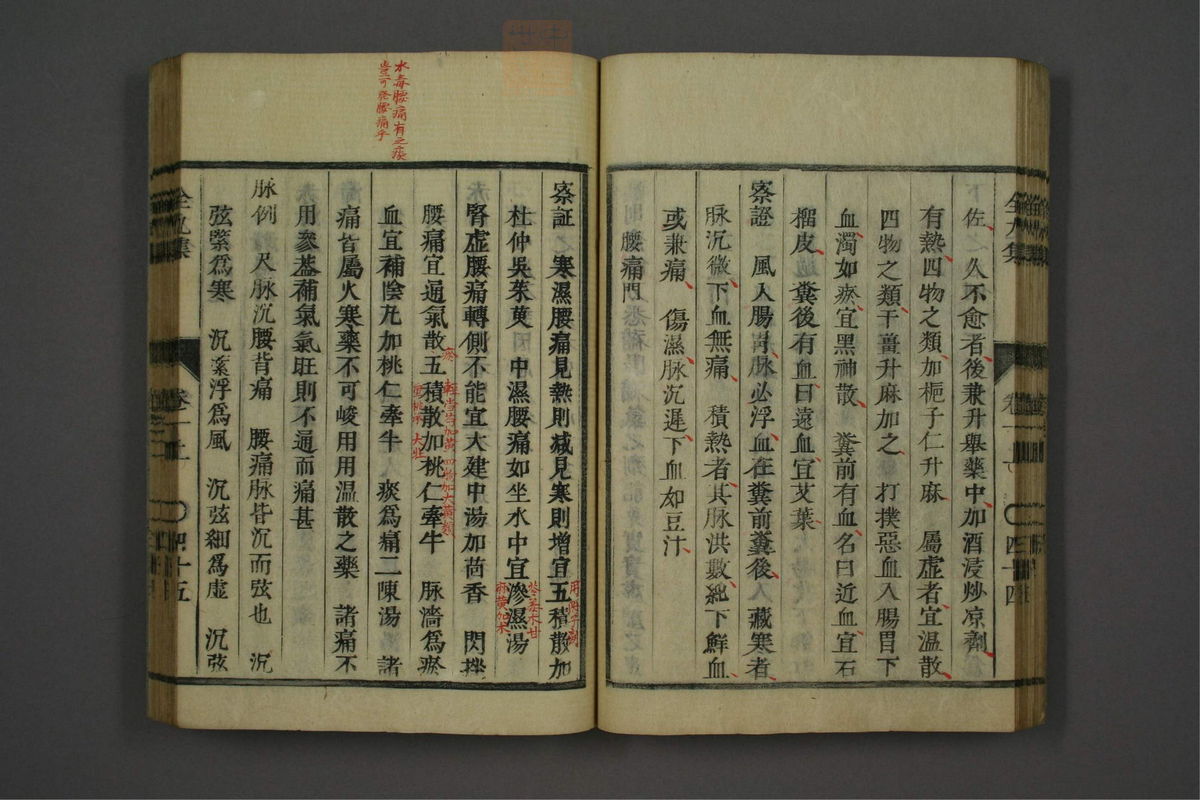 下佐之久不愈者後兼升舉藥中加酒浸炒凉劑
有熱四物之類加梔子仁升麻　屬虛者宜温散
四物之類干薑升麻加之　打撲惡血入腸胃下
血濁如瘀宜黑神散　糞前有血名曰近血宜石
榴皮　糞後有血曰遠血宜艾葉
察證　風入腸胃脉必浮血在糞前糞後入藏寒者
脉沉微下血無痛　積熱者其脉洪數純下鮮血
或兼痛　傷濕脉沉遲下血如豆汁
腰痛門
水毒腰痛有之痰
豈可發腰痛乎
察証　寒濕腰痛見熱則减見寒則增宜五積散加
杜仲吳茱萸　中濕腰痛如坐水中宜滲濕湯
腎虛腰痛轉側不能宜大建中湯加茴香　閃挫
腰痛宜通氣散五積散加桃仁牽牛　脉濇爲瘀
血宜補陰丸加桃仁牽牛　痰爲痛二陳湯　諸
痛皆屬火寒藥不可峻用用温散之藥　諸痛不
用參茋補氣氣旺則不通而痛甚
脉例　尺脉沉腰背痛　腰痛脉皆沉而弦也　沉
弦緊爲寒　沉　浮爲風　沉弦細爲虛　沉弦
全九集
卷一
四十四
全九集
卷一上
四十五